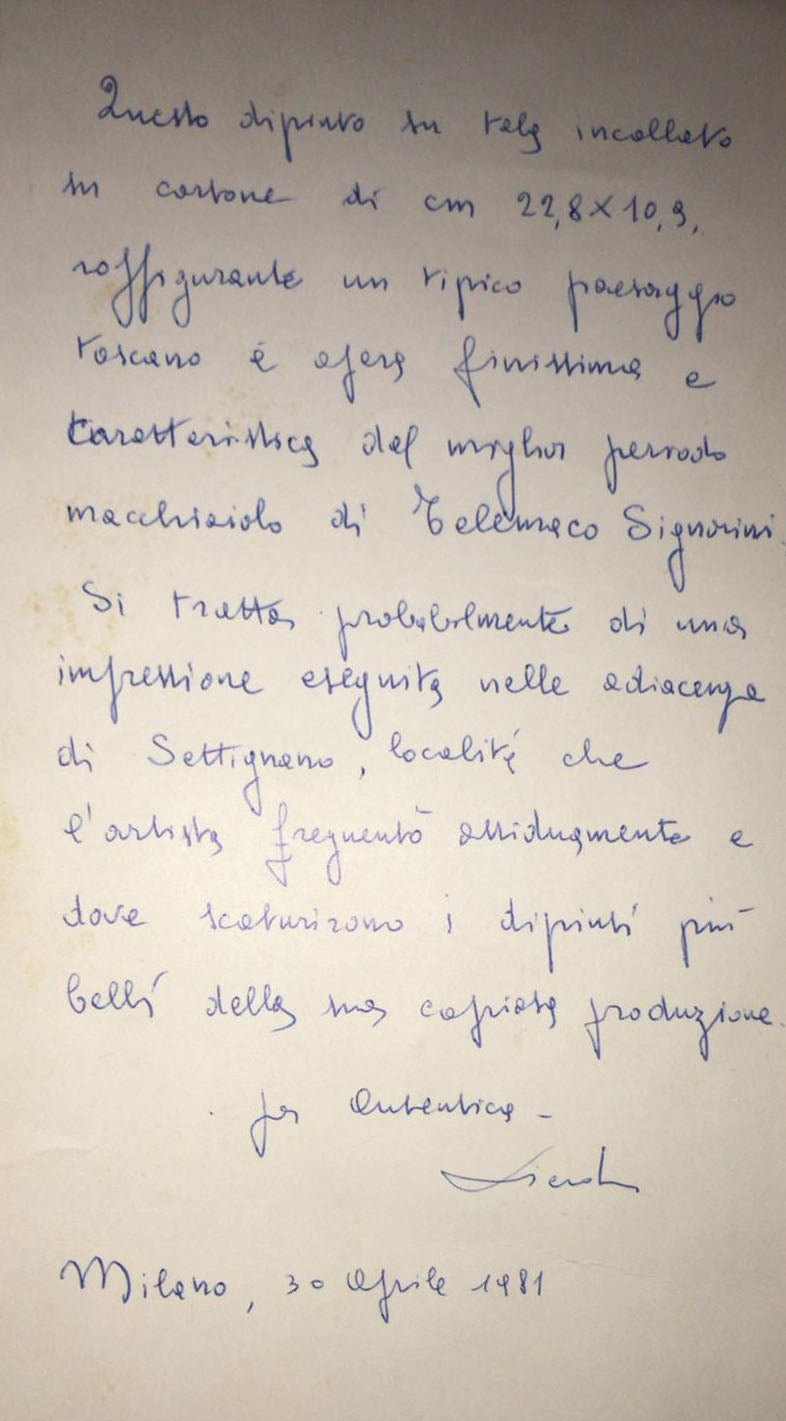 Questo dipinto su tela incollato
su cartone di cm 22,8×10,9,
raffigurante un tipico paesaggio
toscano è opera finissima e
caratteristica del miglior periodo
macchiaiolo di Telemaco Signorini.
Si tratta probabilmente di una
impressione eseguita nelle adiacenze
di Settignano, località che
l'artista frequentò assiduamente e
dove scaturirono i dipinti più
belli della sua copiosa produzione.
per autentica -
Milano, 30 Aprile 1981